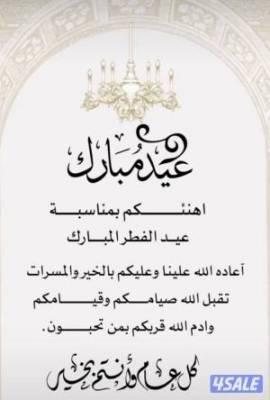 عيد مبارك
اهنئكم بمناسبة
عيد الفطر المبارك
أعاده الله علينا وعليكم بالخير والمسرات
تقبل الله صيامكم وقيامكم
وادم الله قربكم بمن تحبون.
كل عام وأنتم بخير
4SALE